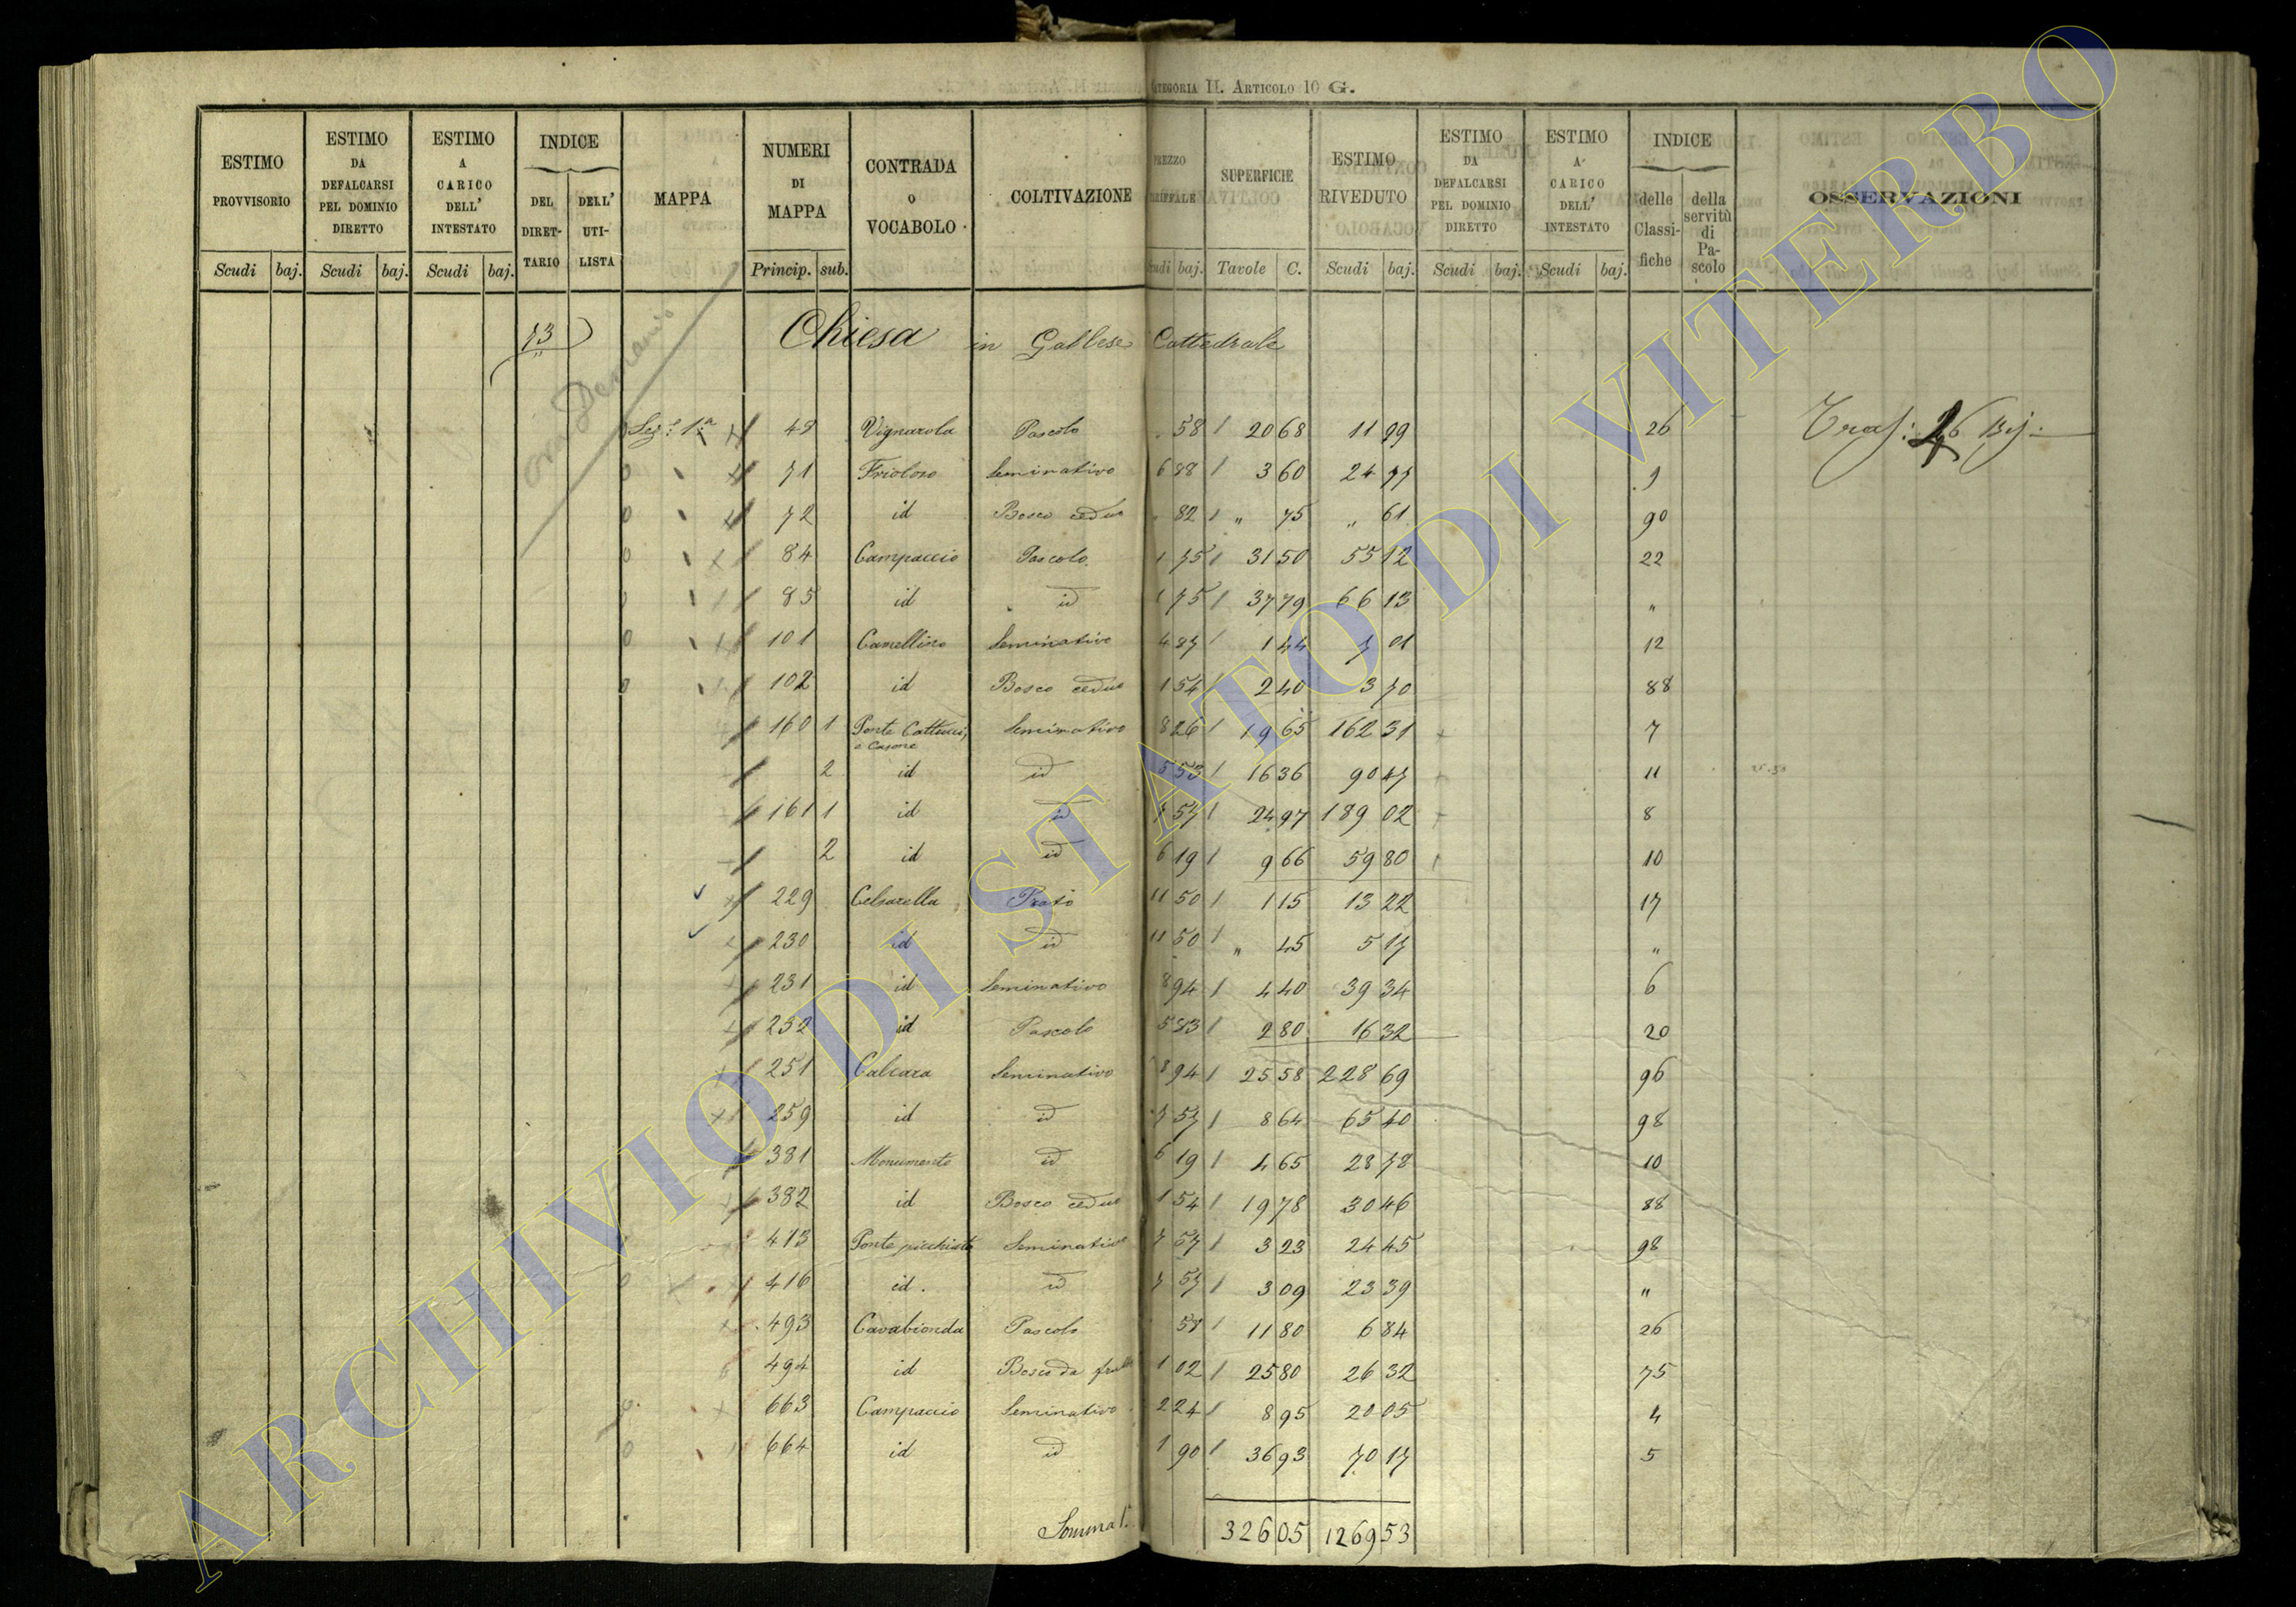 CATEGORIA II. ARTICOLO 10 G.
ESTIMO PROVVISORIO Scudi baj. ESTIMO DA DEFALCARSI PEL DOMINIO DIRETTO Scudi baj. ESTIMO A CARICO DELL' INTESTATO Scudi baj. INDICE DEL DIRETTARIO DELL' UTILISTA MAPPA NUMERI DI MAPPA Princip. sub. CONTRADA o VOCABOLO COLTIVAZIONE PREZZO TARIFFALE Scudi baj. SUPERFICIE Tavole C. ESTIMO RIVEDUTO Scudi baj. ESTIMO DA DEFALCARSI PEL DOMINIO DIRETTO Scudi baj. ESTIMO A CARICO DELL' INTESTATO Scudi baj. INDICE delle Classifiche della servitù di Pascolo OSSERVAZIONI
73 Chiesa in Gallese Cattedrale
ora Demanio
Sez: 1a 49 Vignarola Pascolo 58 20 68 11 99 26
71 Frioloso Seminativo 6 88 3 60 24 77 9
72 id Bosco ceduo 82 " 75 " 61 90
84 Campaccio Pascolo 1 75 31 50 55 12 22
85 id id 1 75 37 79 66 13 "
101 Camellino Seminativo 4 87 1 44 7 01 12
102 id Bosco ceduo 1 54 2 40 3 70 88
160 1 Ponte Cattucci, o Casone Seminativo 8 26 19 65 162 31 7
2 id id 5 53 16 36 90 47 11
161 1 id id 7 57 24 97 189 02 8
2 id id 6 19 9 66 59 80 10
229 Celsarella Prato 11 50 1 15 13 22 17
230 id id 11 50 " 45 5 17 "
231 id Seminativo 8 94 4 40 39 34 6
232 id Pascolo 5 83 2 80 16 32 20
251 Calcara Seminativo 8 94 25 58 228 69 96
259 id id 7 57 8 64 65 40 98
381 Monumento id 6 19 4 65 28 78 10
382 id Bosco ceduo 1 54 19 78 30 46 88
413 Ponte picchiato Seminativo 7 57 3 23 24 45 98
416 id. id 7 57 3 09 23 39 "
493 Cavabionda Pascolo 58 11 80 6 84 26
494 id Bosco da frutto 1 02 25 80 26 32 75
663 Campaccio Seminativo 2 24 8 95 20 05 4
664 id id 1 90 36 93 70 17 5
Sommat. 326 05 1269 53
ARCHIVIO DI STATO DI VITERBO